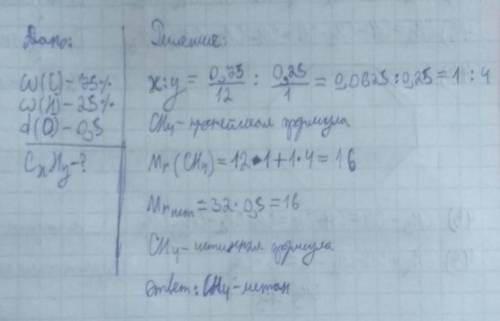 Дано:
ω(C) - 75%
ω(H) - 25%
d(O) - 0,5
CxHy - ?
Решение:
x:y = 0,75/12 : 0,25/1 = 0,0625 : 0,25 = 1 : 4
CH₄ - простейшая формула
Mr(CH₄) = 12·1 + 1·4 = 16
Mr ист = 32·0,5 = 16
CH₄ - истинная формула
Ответ: CH₄ - метан